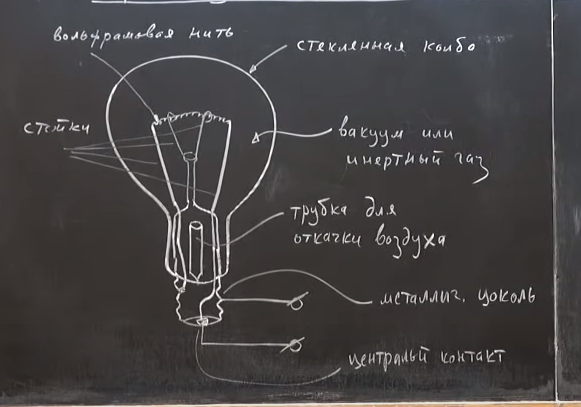 вольфрамовая нить
стеклянная колбо
стойки
вакуум или
инертный газ
трубка для
откачки воздуха
металлич. цоколь
централый контакт